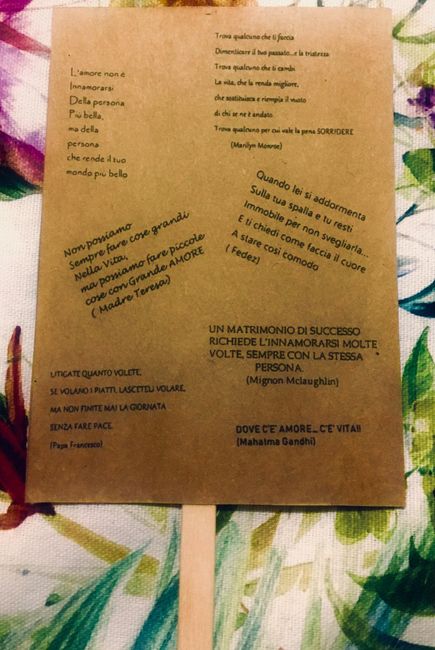 L'amore non è
Innamorarsi
Della persona
Più bella,
ma della
persona
che rende il tuo
mondo più bello
Trova qualcuno che ti faccia
Dimenticare il tuo passato...e la tristezza
Trova qualcuno che ti cambi
La vita, che la renda migliore,
che sostituisca e riempia il vuoto
di chi se ne è andato.
Trova qualcuno per cui vale la pena SORRIDERE
(Marilyn Monroe)
Quando lei si addormenta
Sulla tua spalla e tu resti
Immobile per non svegliarla...
E ti chiedi come faccia il cuore
A stare così comodo
( Fedez)
Non possiamo
Sempre fare cose grandi
Nella Vita,
ma possiamo fare piccole
cose con Grande AMORE
( Madre Teresa)
UN MATRIMONIO DI SUCCESSO
RICHIEDE L'INNAMORARSI MOLTE
VOLTE, SEMPRE CON LA STESSA
PERSONA.
(Mignon Mclaughlin)
LITIGATE QUANTO VOLETE,
SE VOLANO I PIATTI, LASCETELI VOLARE,
MA NON FINITE MAI LA GIORNATA
SENZA FARE PACE.
(Papa Francesco)
DOVE C'E' AMORE... C'E' VITA!!
(Mahatma Gandhi)